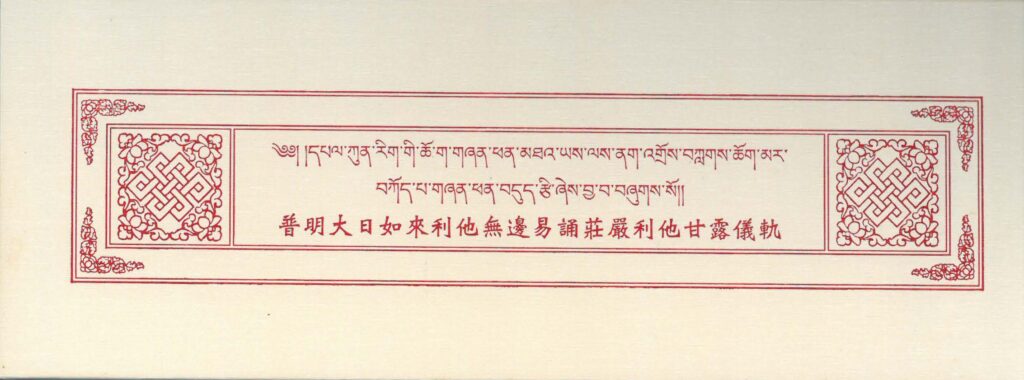 ༄༅། །དཔལ་ཀུན་རིག་གི་ཆོ་ག་གཞན་ཕན་མཐའ་ཡས་ལས་ནག་འགྲོས་བཀླགས་ཆོག་མར་
བཀོད་པ་གཞན་ཕན་བདུད་རྩི་ཞེས་བྱ་བ་བཞུགས་སོ།།
普明大日如來利他無邊易誦莊嚴利他甘露儀軌